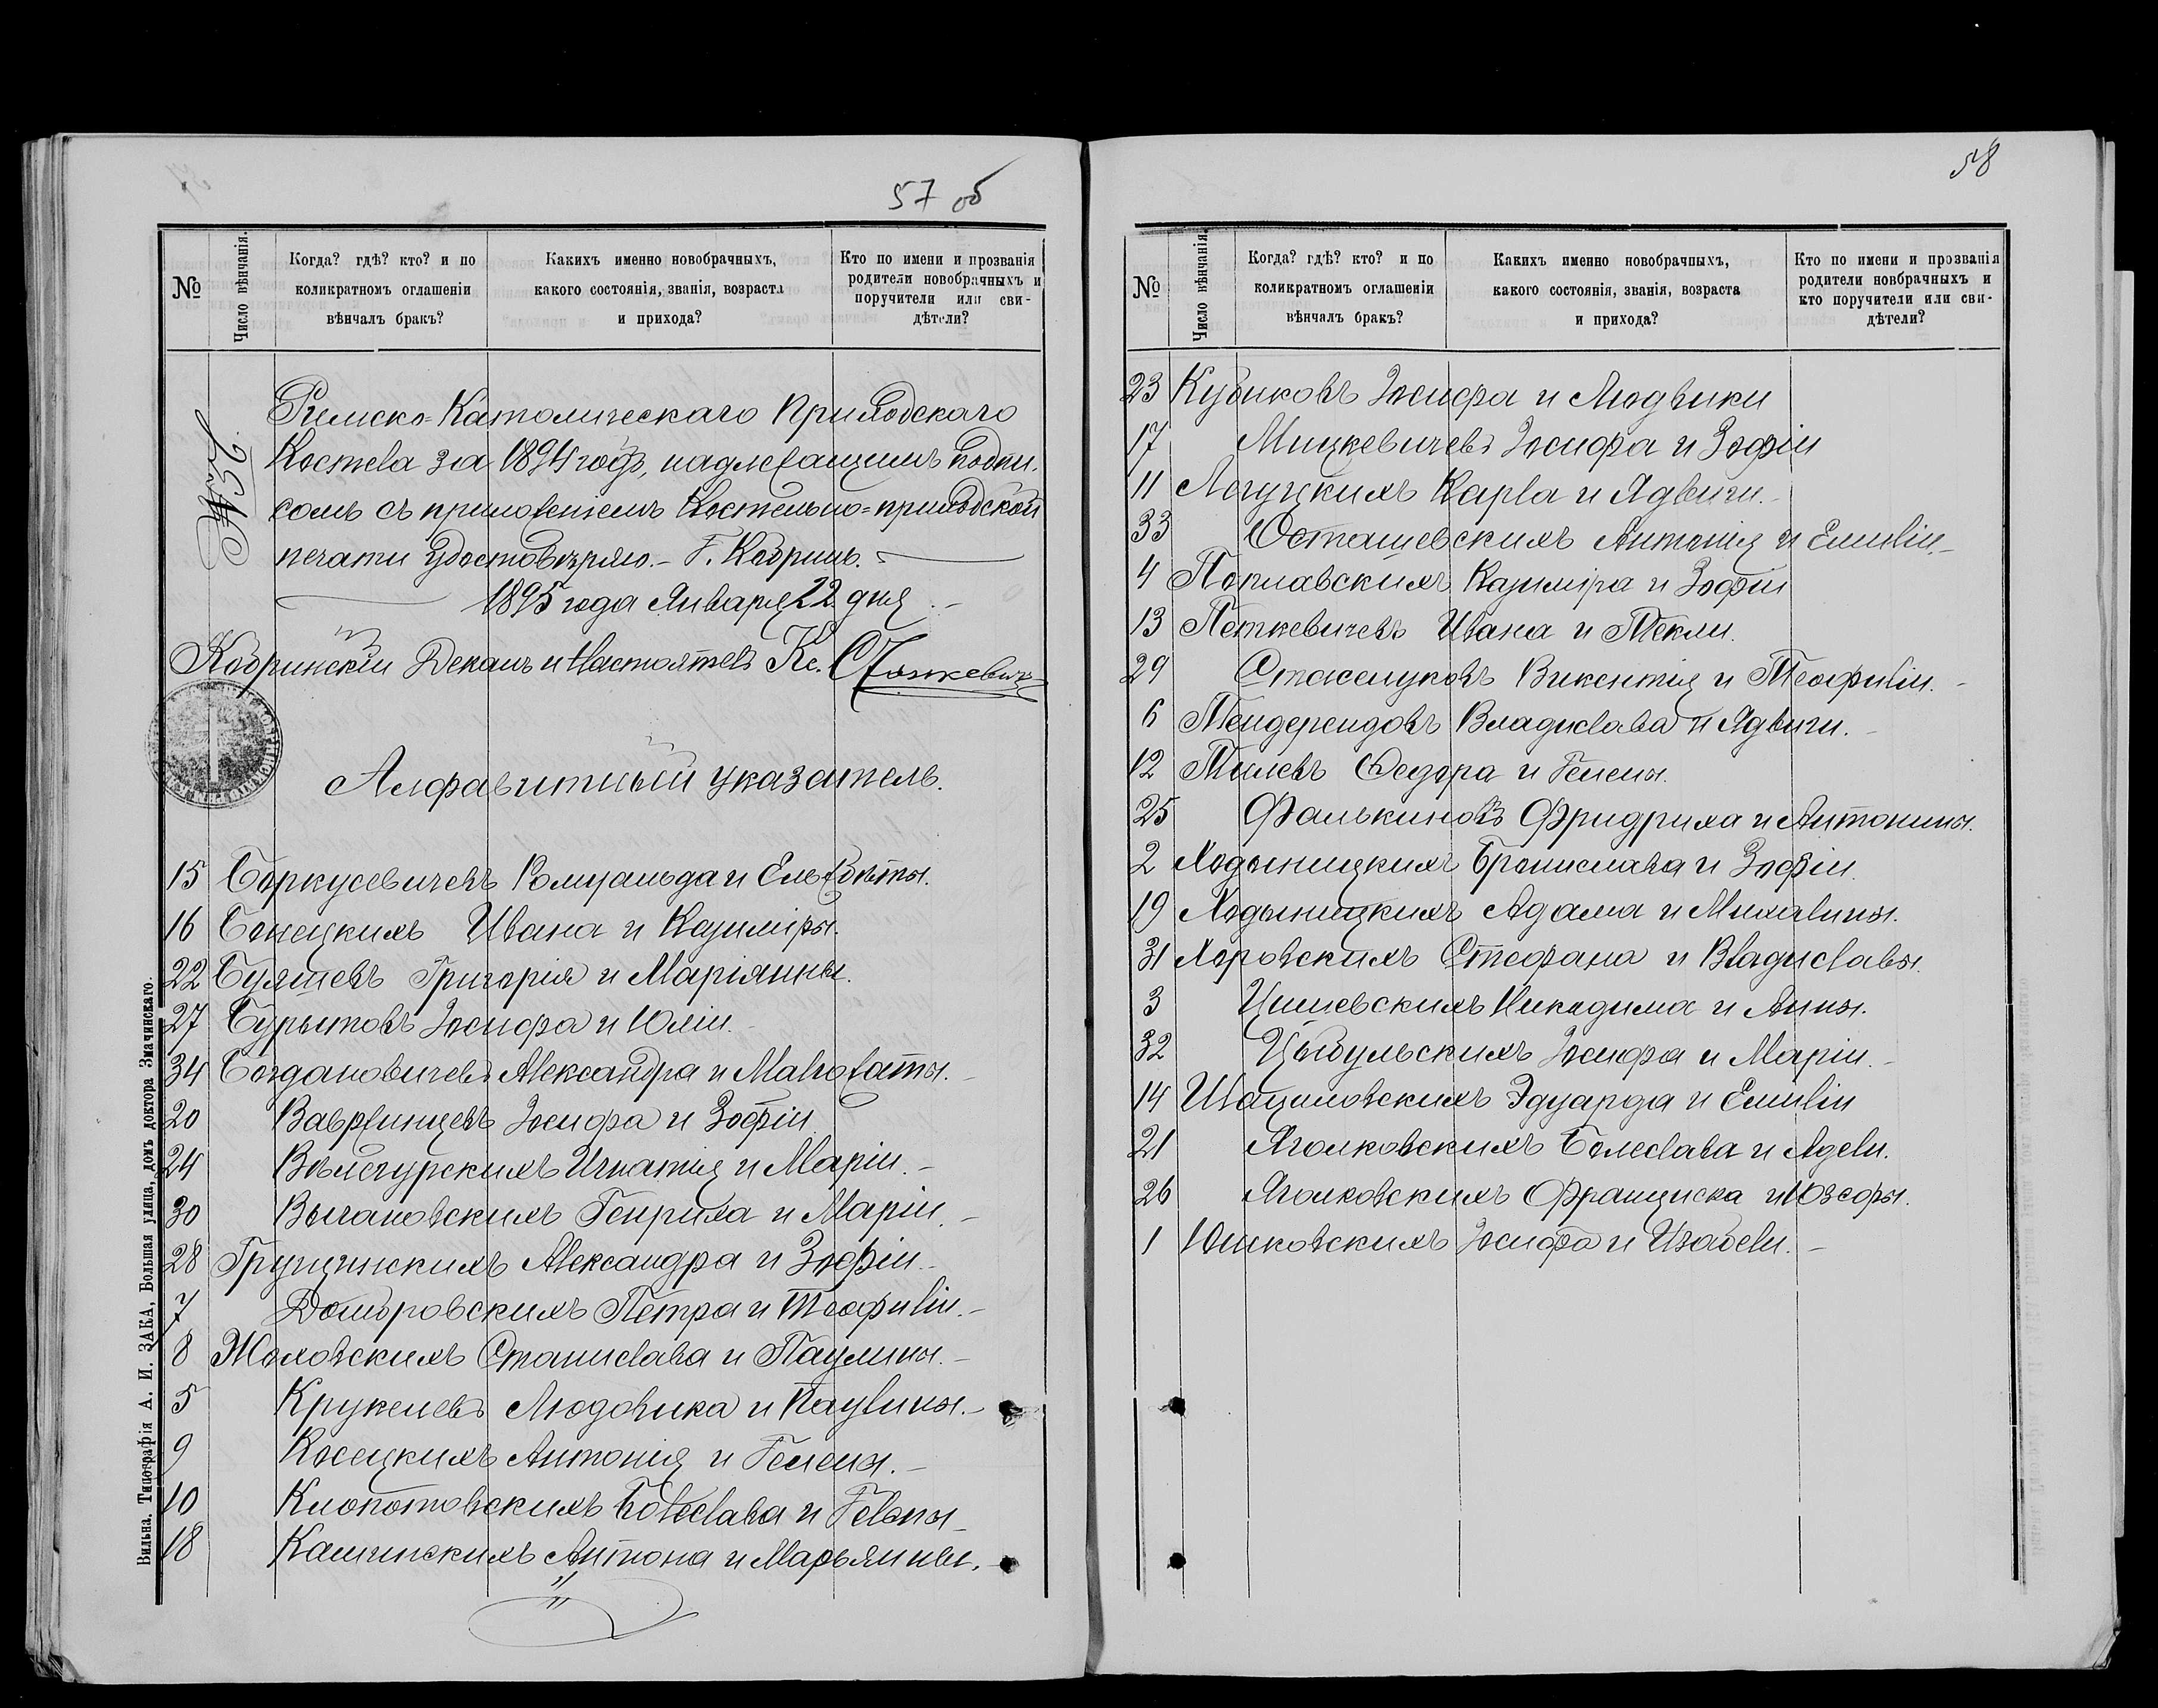 57 об
№
Число вѣнчанія.
Когда? гдѣ? кто? и по
коликратномъ оглашеніи
вѣнчалъ бракъ?
Какихъ именно новобрачныхъ,
какого состоянія, званія, возраста
и прихода?
Кто по имени и прозванія
родители новобрачныхъ и
поручители или сви-
дѣтели?
№ 36.
Римско-Католическаго Приходскаго
Костела за 1894 годъ, надлежащимъ подпи-
сомъ съ приложеніемъ Костельно-приходской
печати удостовѣряю.- Г. Кобринъ.
1895 года Января 22 дня.
Кобринскій Деканъ и Настоятель Кс.
Алфавитный указатель.
15 Боркусевичевъ Ромуальда и Ельжбѣты.
16 Бонецкихъ Ивана и Казиміры.
22 Буяшевъ Григорія и Маріянны.
27 Бурытовъ Іосифа и Юліи.
34 Богдановичевъ Александра и Малгожаты.
20 Ваврлинцевъ Іосифа и Зофіи
24 Вѣлегурскихъ Игнатія и Маріи.
30 Выгановскихъ Генриха и Маріи.
28 Грущинскихъ Александра и Зофіи.
7 Домбровскихъ Петра и Теофиліи.
8 Жоховскихъ Станислава и Паулины.
5 Крукелевъ Людовика и Паулины.
9 Косецкихъ Антонія и Гелены.
10 Клопотовскихъ Болеслава и Гелены
18 Камински́хъ Антона и Марьянны.
Вильна. Типографія А. И. ЗАКА, Большая улица, домъ доктора Значинскаго.
58
№
Число вѣнчанія.
Когда? гдѣ? кто? и по
коликратномъ оглашеніи
вѣнчалъ бракъ?
Какихъ именно новобрачныхъ,
какого состоянія, званія, возраста
и прихода?
Кто по имени и прозванія
родители новбрачныхъ и
кто поручители или сви-
дѣтели?
23 Кубиковъ Іосифа и Людвики
17 Мицкевичевъ Іосифа и Зофіи
11 Логуцкихъ Карла и Ядвиги.
33 Осташевскихъ Антонія и Емиліи.
4 Поплавскихъ Казиміра и Зофіи
13 Петкевичевъ Ивана и Текли.
29 Стаселуковъ Викентія и Теофиліи.
6 Тендерендовъ Владислава и Ядвиги.
12 Тилевъ Федора и Гелены.
25 Фалькиновъ Фридриха и Антонины.
2 Ходыницкихъ Бронислава и Зофіи.
19 Ходыницкихъ Адама и Михалины.
31 Хоровскихъ Стефана и Владиславы.
3 Цишевскихъ Никадима и Анны.
32 Цыбульскихъ Іосифа и Маріи.
14 Шацкловскихъ Эдуарда и Емиліи
21 Яголковскихъ Болеслава и Адели.
26 Яголковскихъ Франциска и Юзефы.
1 Юшковскихъ Іосифа и Изабели.